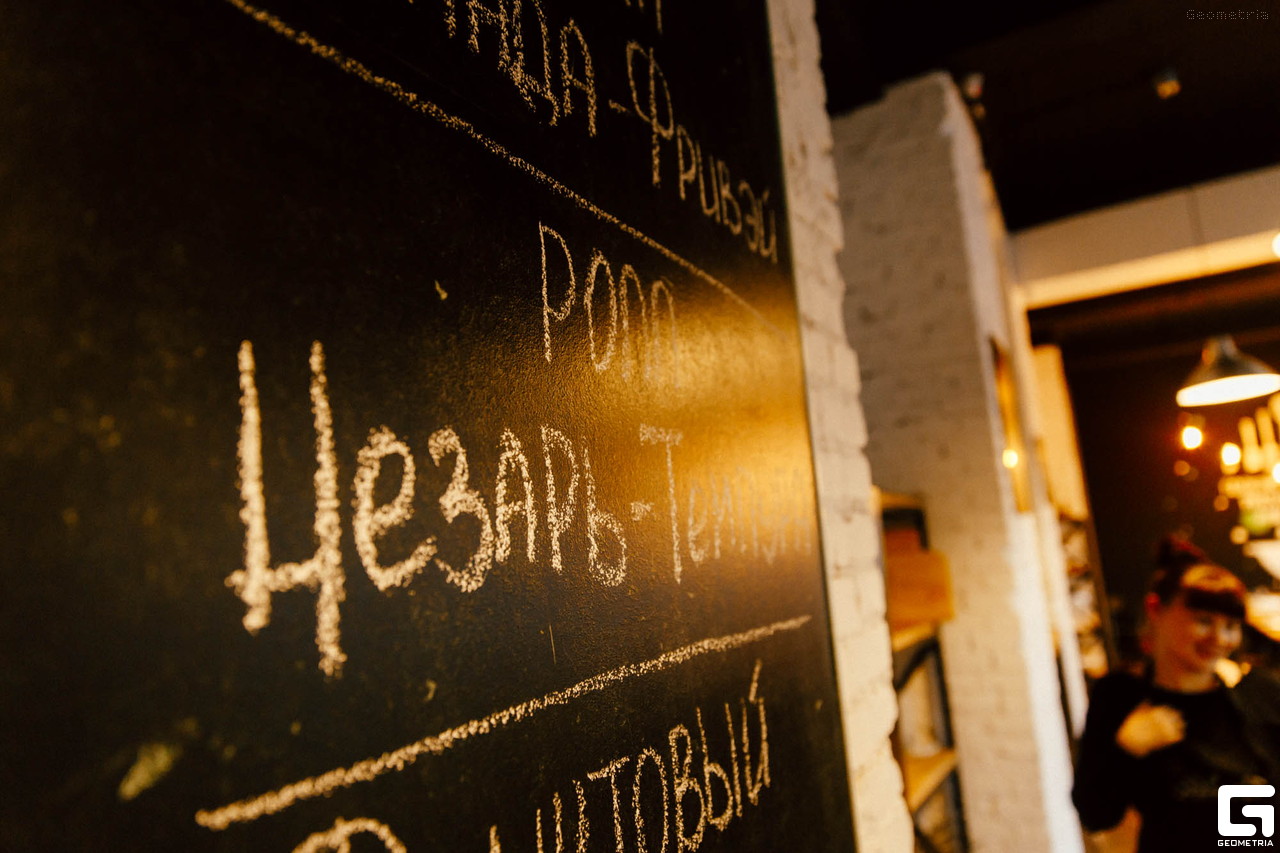 Geometria
ица-Фривэй
Ролл
Цезарь-Темпура
товый
GEOMETRIA